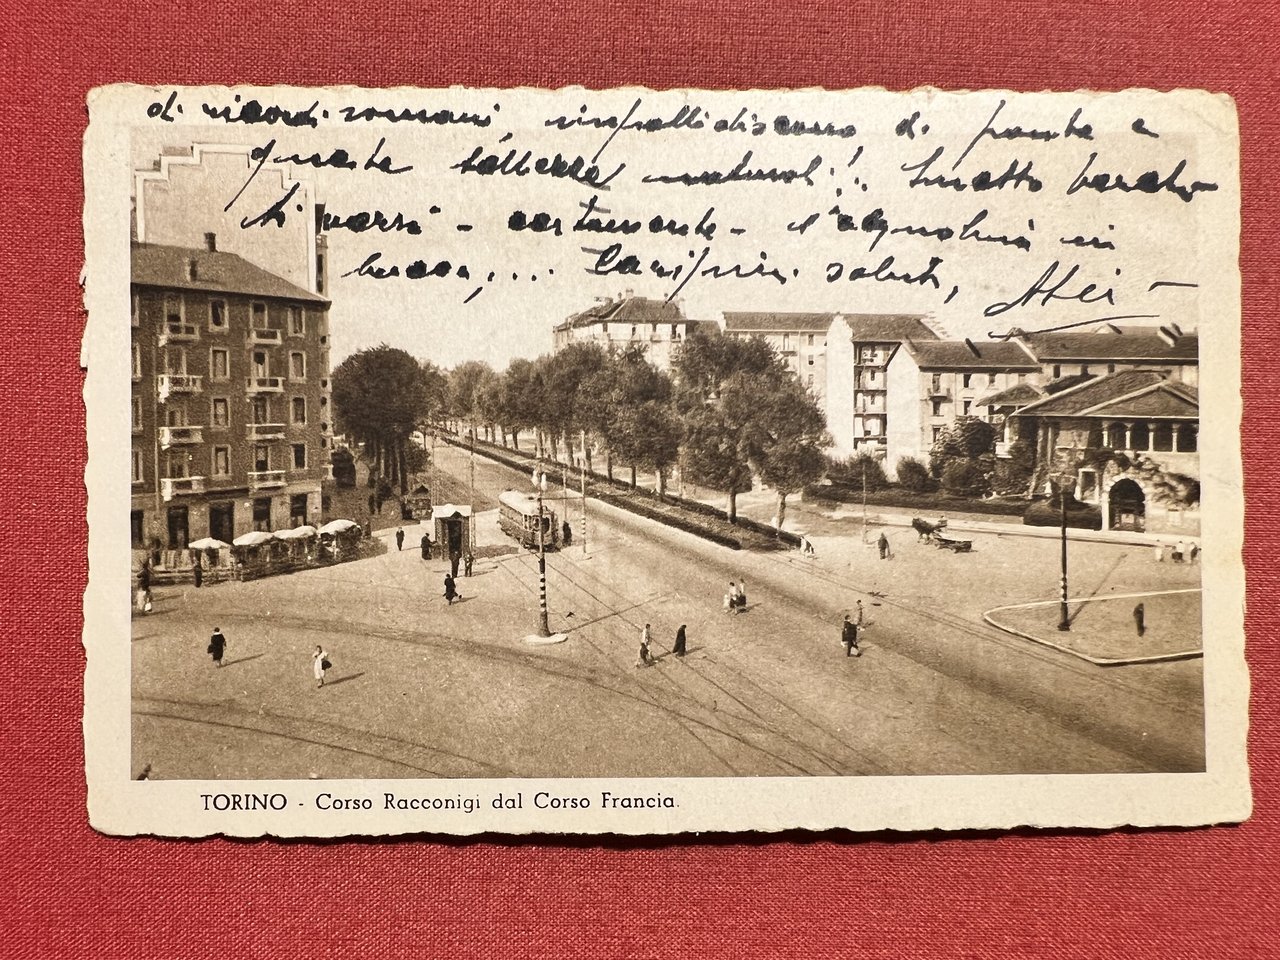 di ricordi romani, infallidiscono di fronte a
queste bellezze naturali!. 
ti - certamente - l'acquolina in
bocca,... Carissimi saluti,
TORINO - Corso Racconigi dal Corso Francia.